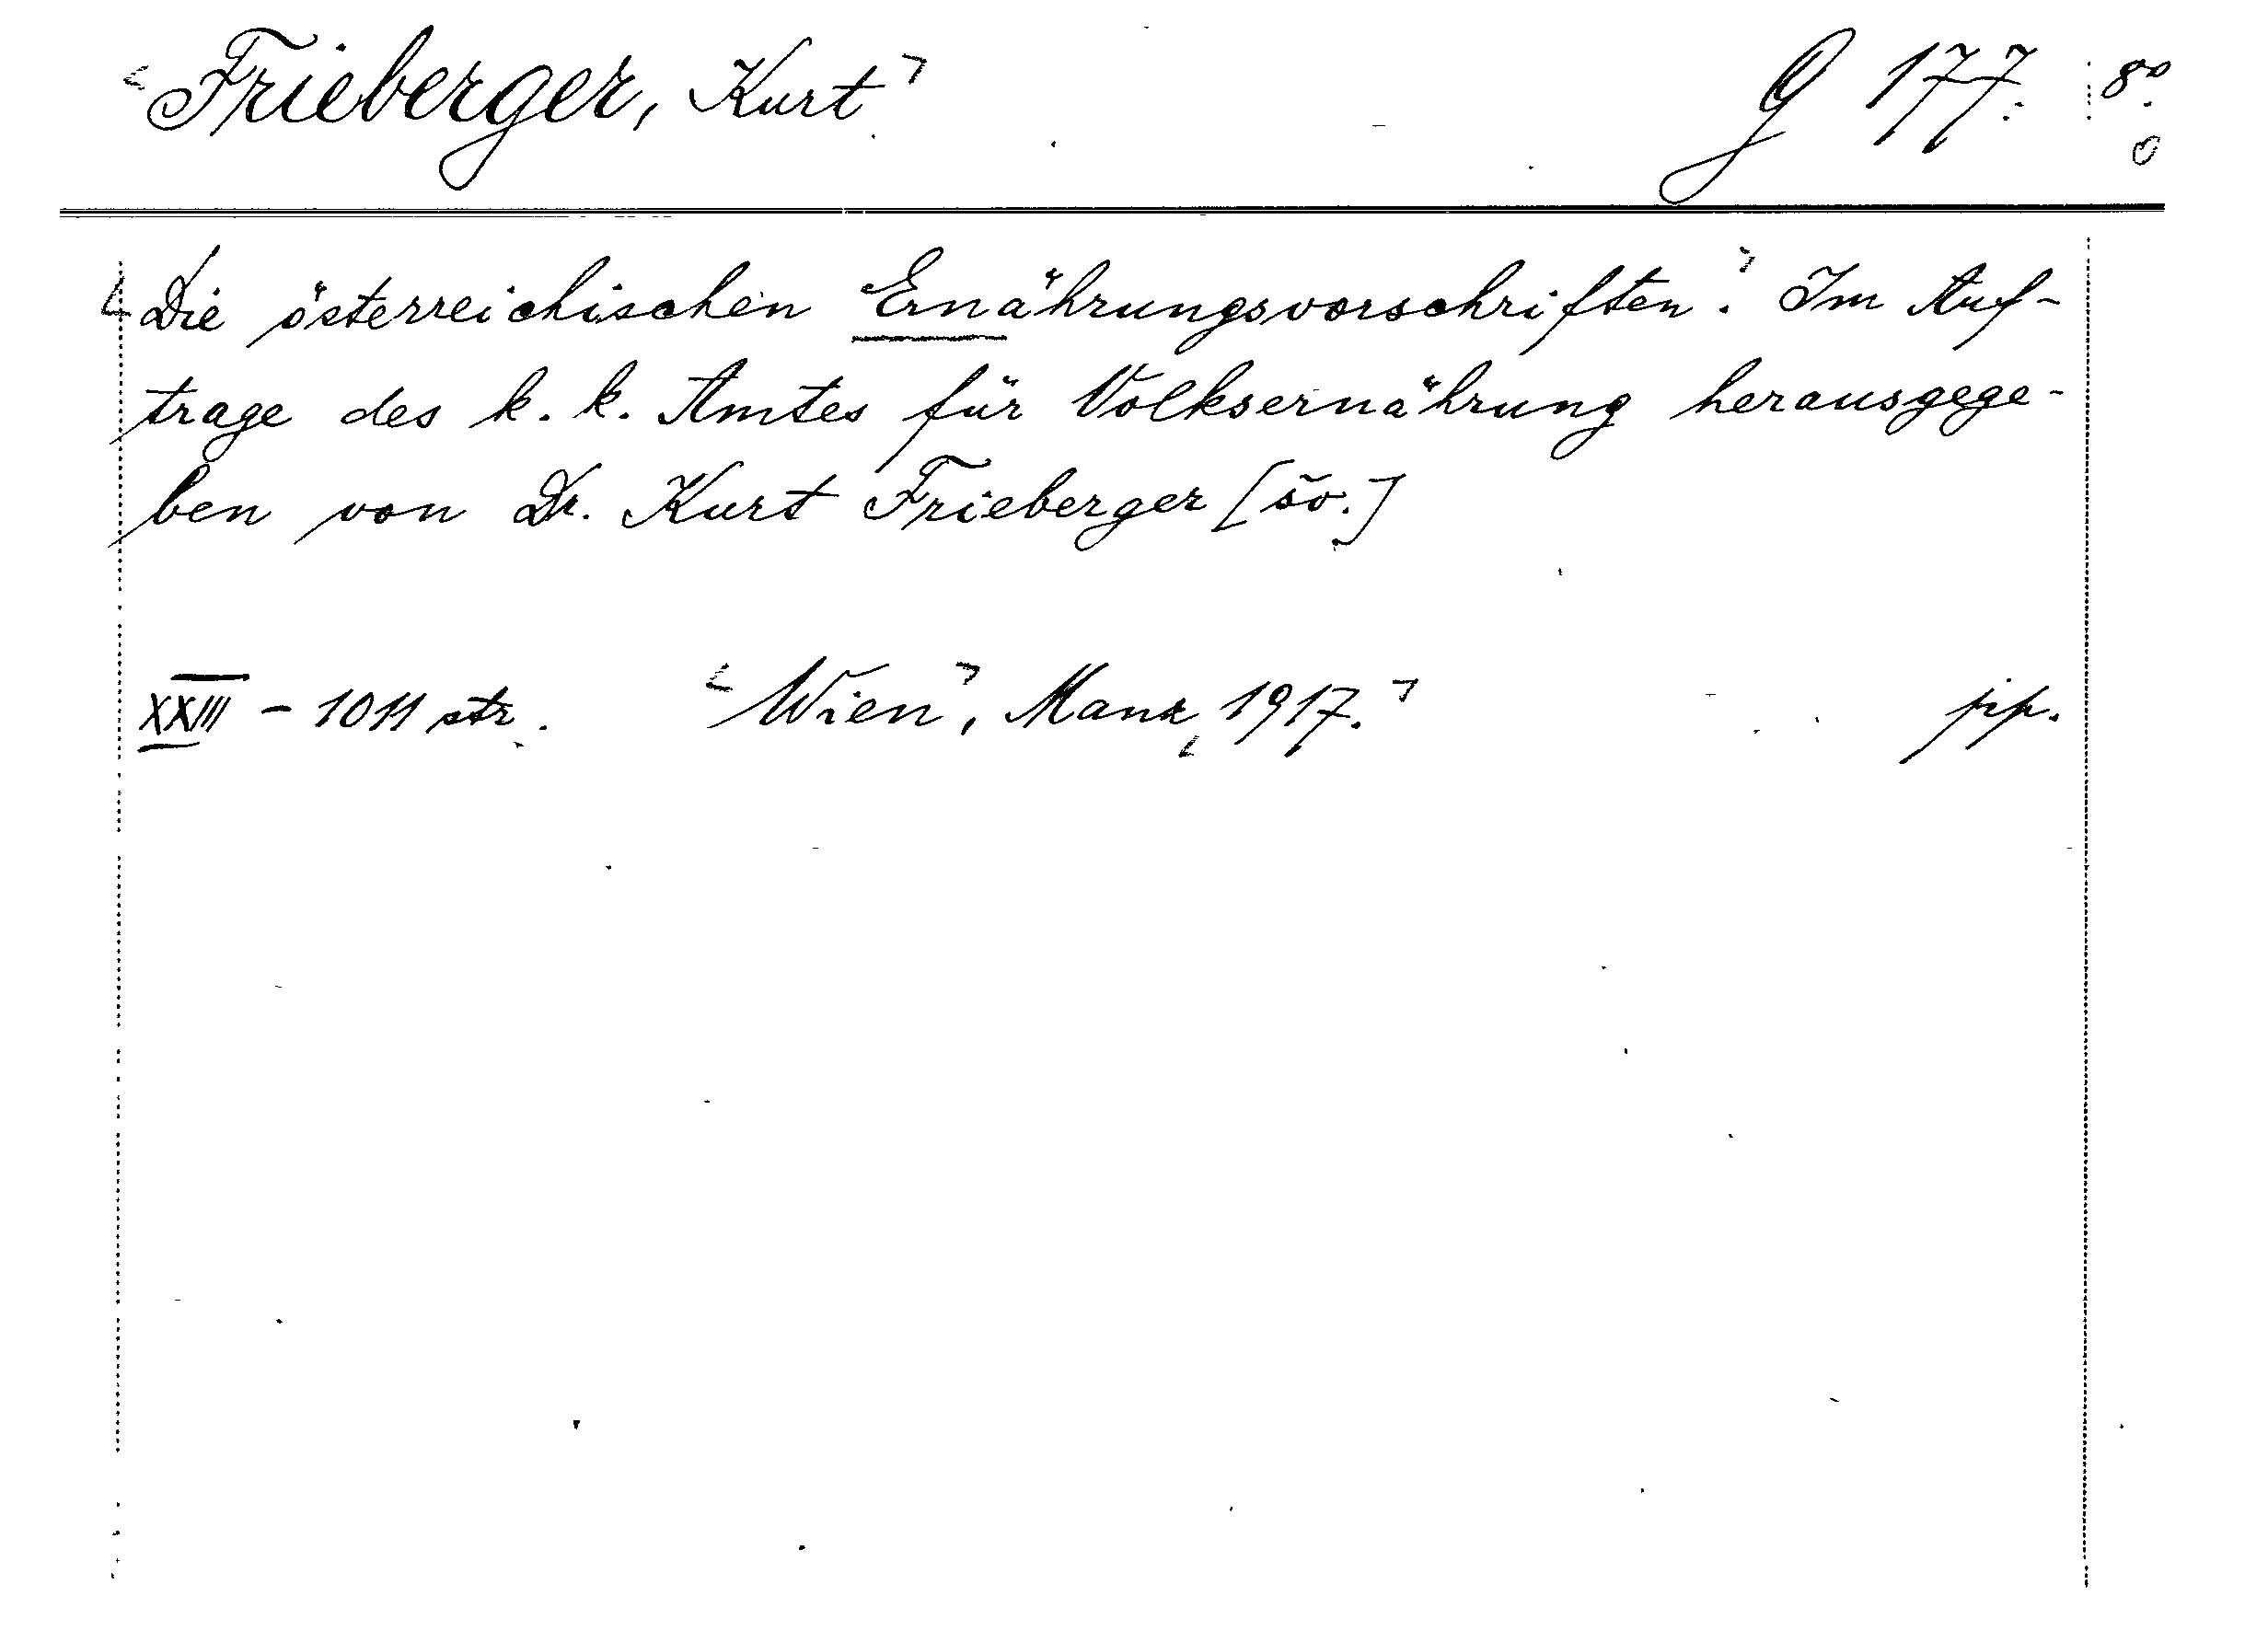 Frieberger, Kurt G 177. 8º.
Die österreichischen Ernährungsvorschriften. Im Auf-
trage des k. k. Amtes für Volksernährung herausgege-
ben von Dr. Kurt Frieberger [sv.]
XXIII - 1011 str. Wien, Manz 1917. pp.